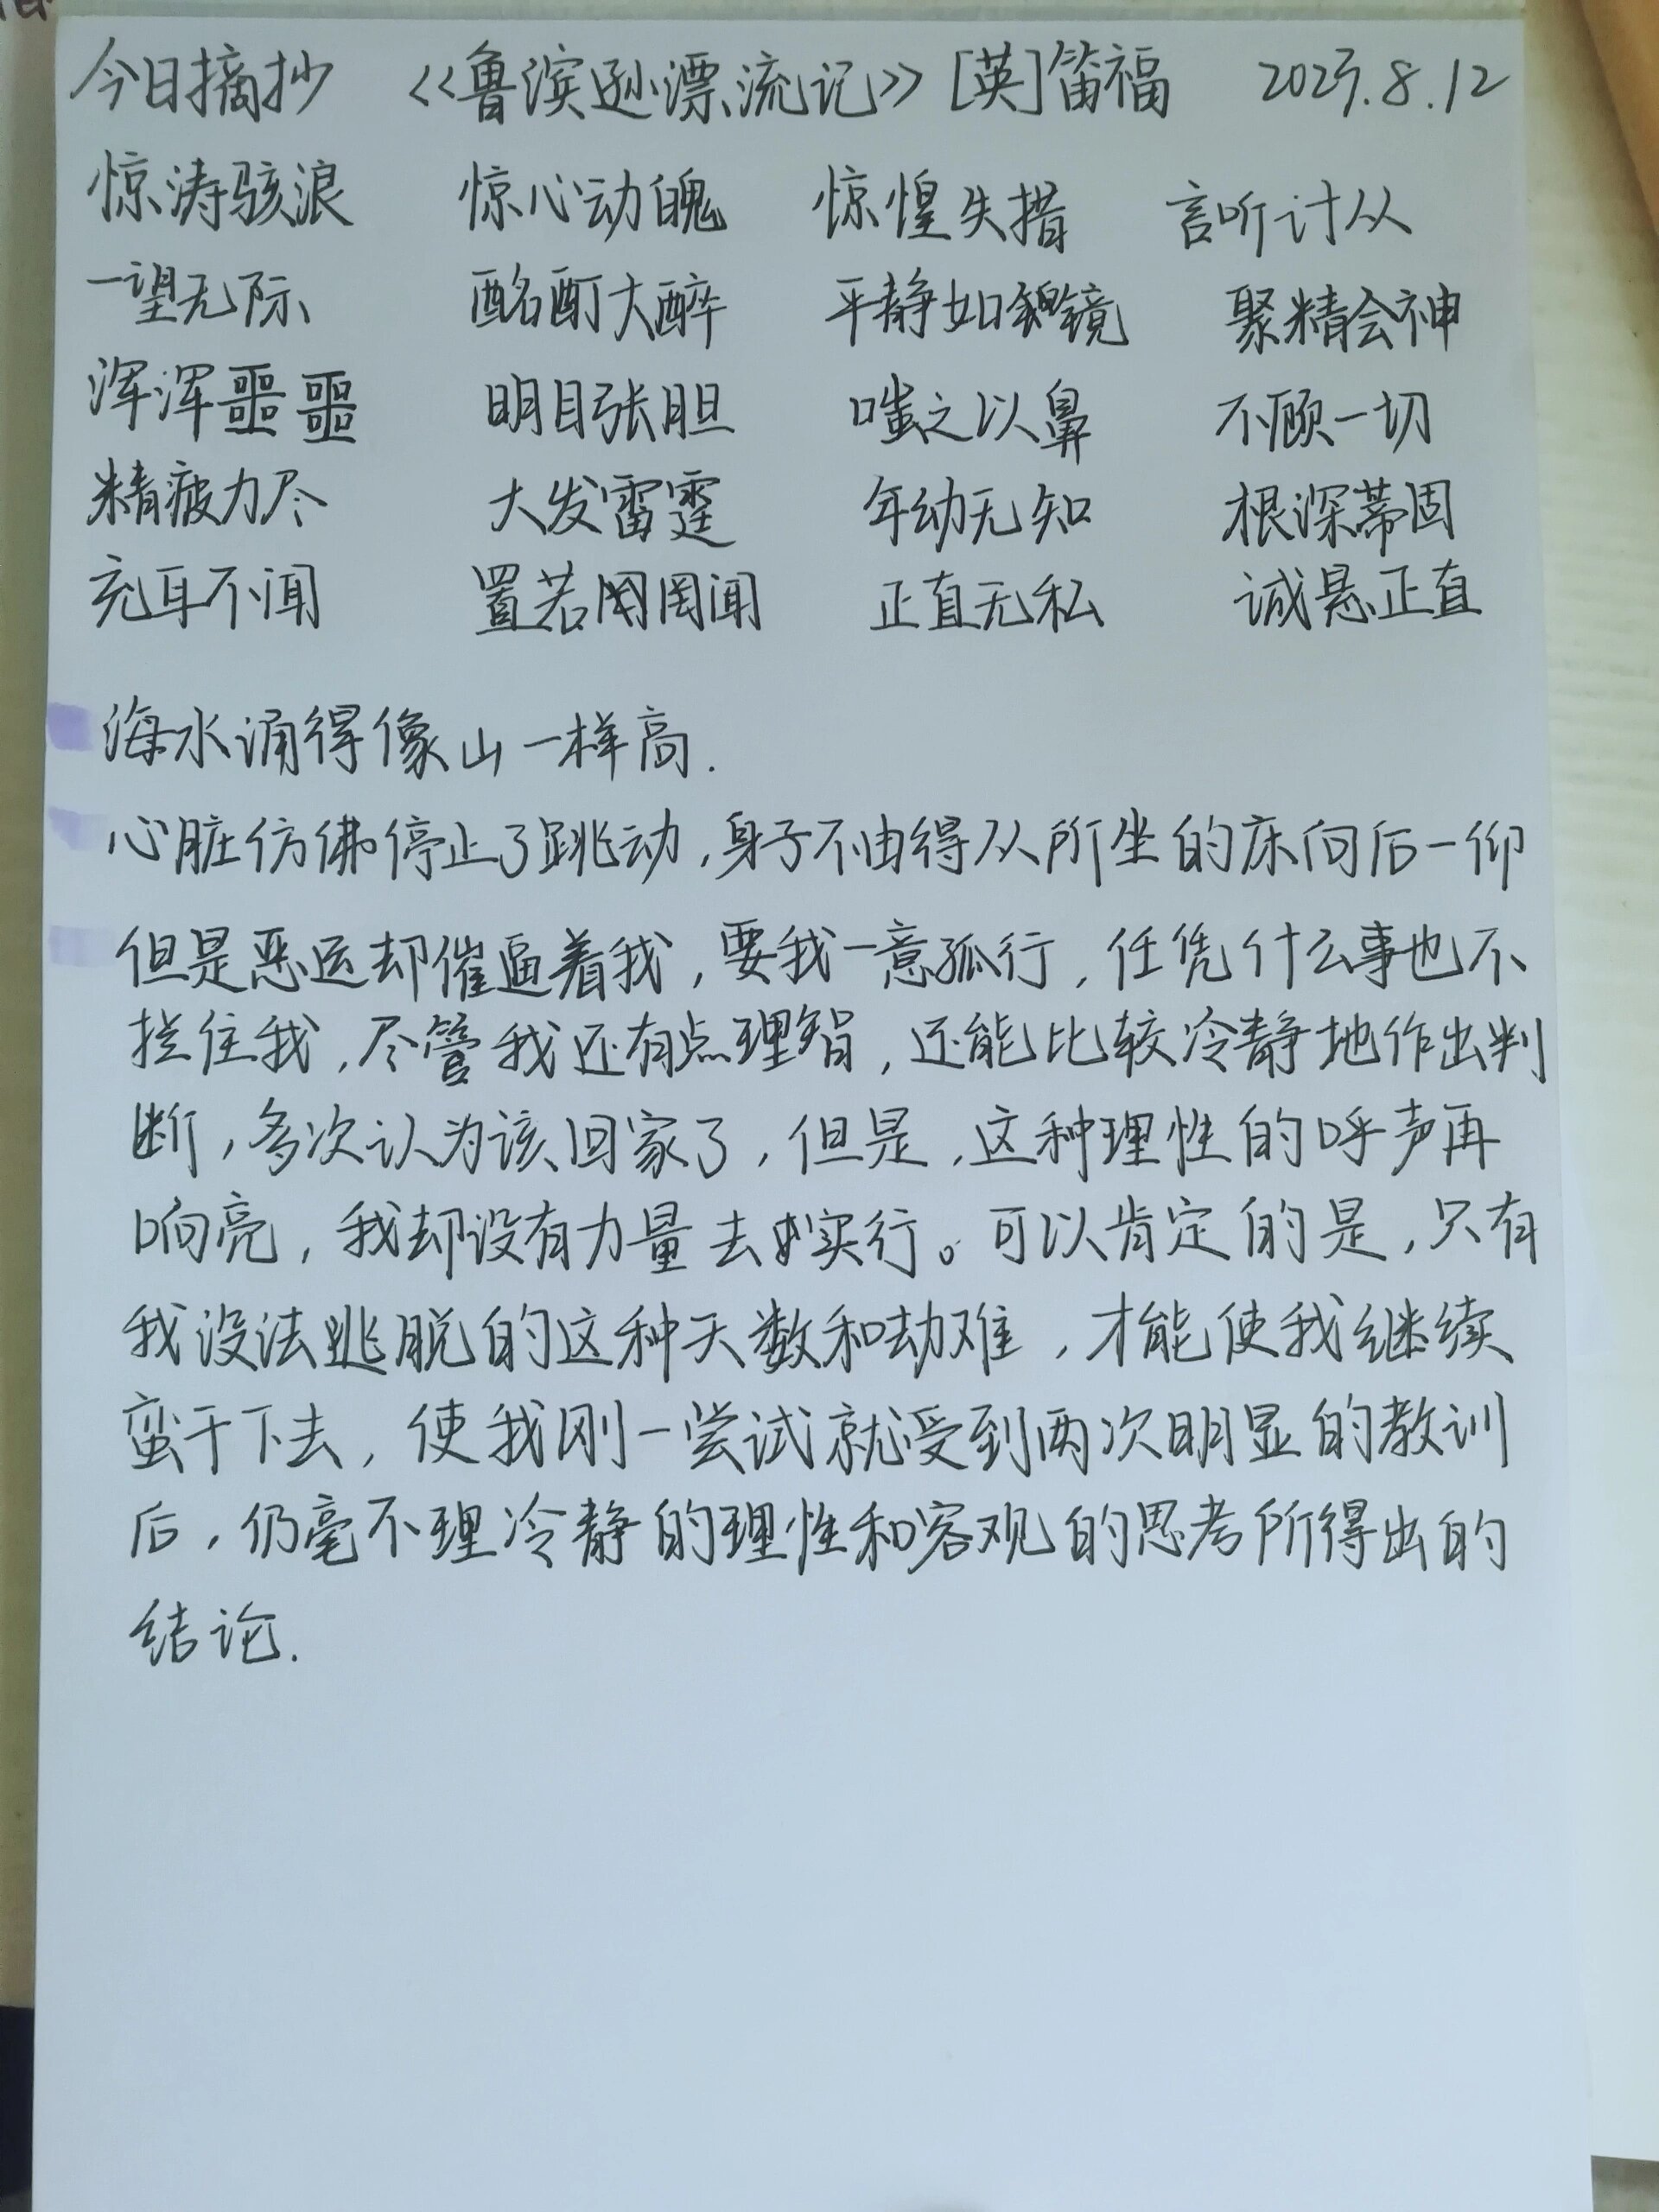 今日摘抄 《鲁滨逊漂流记》 [英]笛福 2023.8.12
惊涛骇浪 惊心动魄 惊惶失措 言听计从
一望无际 酩酊大醉 平静如镜 聚精会神
浑浑噩噩 明目张胆 嗤之以鼻 不顾一切
精疲力尽 大发雷霆 年幼无知 根深蒂固
充耳不闻 置若罔闻 正直无私 诚恳正直
海水涌得像山一样高.
心脏仿佛停止了跳动,身子不由得从所坐的床向后一仰
但是恶运却催逼着我,要我一意孤行,任凭什么事也不
拦住我,尽管我还有点理智,还能比较冷静地作出判
断,多次认为该回家了,但是,这种理性的呼声再
响亮,我却没有力量去实行。可以肯定的是,只有
我没法逃脱的这种天数和劫难,才能使我继续
蛮干下去,使我刚一尝试就受到两次明显的教训
后,仍毫不理冷静的理性和客观的思考所得出的
结论.